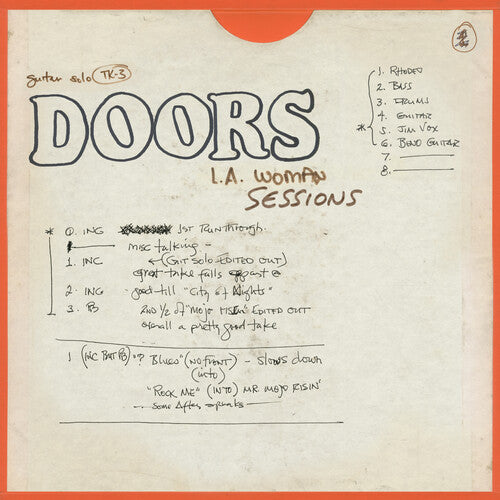 guitar solo TK-3
DOORS
L.A. WOMAN
SESSIONS
1. RHODES
2. BASS
3. DRUMS
4. GUITAR
* 5. JIM VOX
6. BEND GUITAR
7.
8.
* 0. INC 1ST RunThrough.
misc talking -
1. INC ← (GIT SOLO EDITED OUT)
great take falls apart @
2. INC good till "City of Nights"
3. PB 2ND 1/2 of "MOJO RISEN" EDITED OUT
overall a pretty good take
1 (INC BUT PB) "? Blues" (NO FRONT) - Slows down
(into)
"ROCK ME" (INTO) MR MOJO RISIN'
Some After